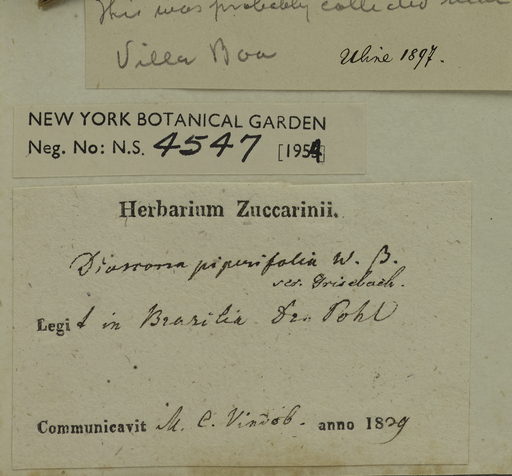 This was probably collected near
Villa Boa
Uline 1897.
NEW YORK BOTANICAL GARDEN
Neg. No: N.S. 4547 [1954]
Herbarium Zuccarinii.
Dioscorea piperifolia W. β.
sec. Grisebach.
Legit in Brasilia Dr. Pohl
Communicavit M. C. Vindob. anno 1839